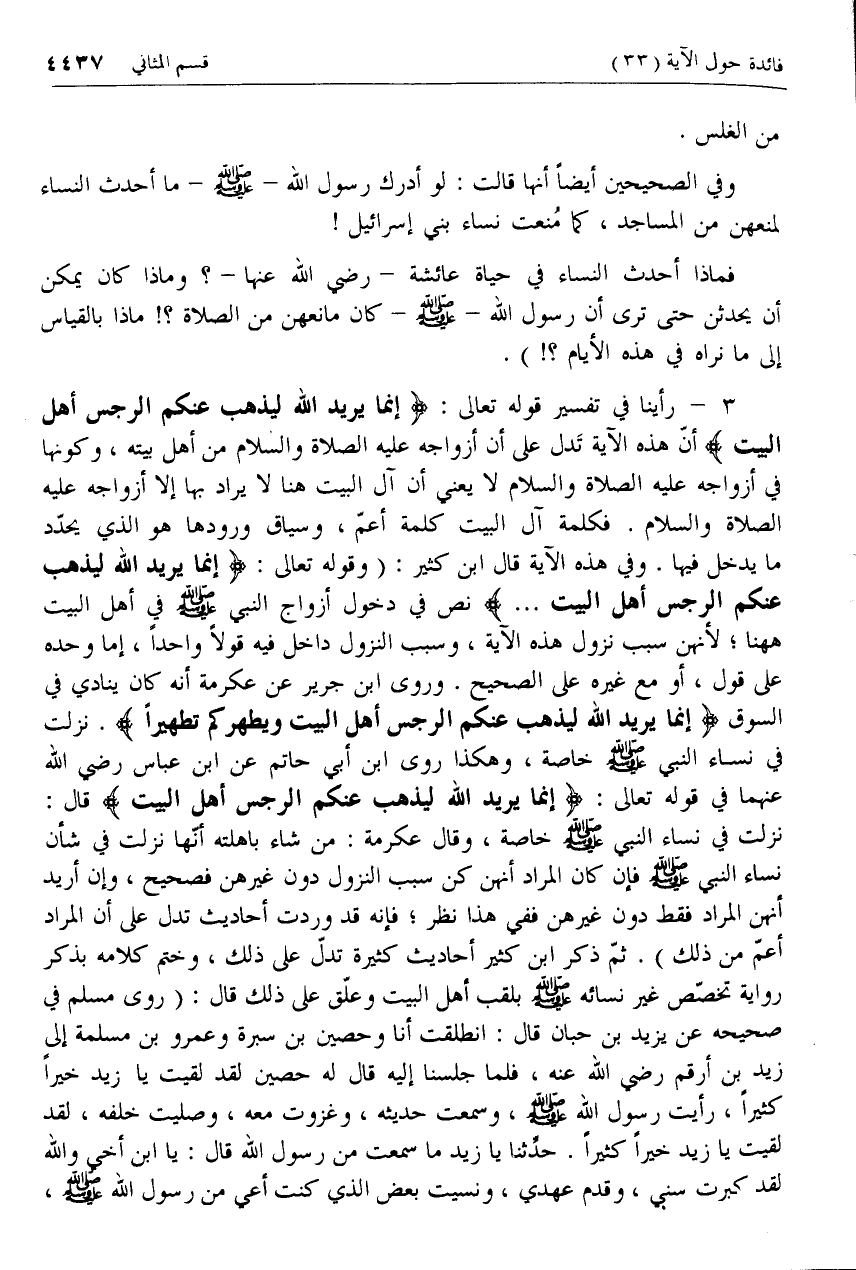 فائدة حول الآية ( ٣٣ ) قسم المثاني ٤٤٣٧
من الغلس .
وفي الصحيحين أيضاً أنها قالت : لو أدرك رسول الله – ﷺ – ما أحدث النساء
لمنعهن من المساجد ، كما مُنعت نساء بني إسرائيل !
فماذا أحدث النساء في حياة عائشة – رضي الله عنها – ؟ وماذا كان يمكن
أن يحدثن حتى ترى أن رسول الله – ﷺ – كان مانعهن من الصلاة ؟! ماذا بالقياس
إلى ما نراه في هذه الأيام ؟! ) .
٣ – رأينا في تفسير قوله تعالى : ﴿ إنما يريد الله ليذهب عنكم الرجس أهل
البيت ﴾ أنّ هذه الآية تَدل على أن أزواجه عليه الصلاة والسلام من أهل بيته ، وكونها
في أزواجه عليه الصلاة والسلام لا يعني أن آل البيت هنا لا يراد بها إلا أزواجه عليه
الصلاة والسلام . فكلمة آل البيت كلمة أعمّ ، وسياق ورودها هو الذي يحدّد
ما يدخل فيها . وفي هذه الآية قال ابن كثير : ( وقوله تعالى : ﴿ إنما يريد الله ليذهب
عنكم الرجس أهل البيت ... ﴾ نص في دخول أزواج النبي ﷺ في أهل البيت
ههنا ؛ لأنهن سبب نزول هذه الآية ، وسبب النزول داخل فيه قولاً واحداً ، إما وحده
على قول ، أو مع غيره على الصحيح . وروى ابن جرير عن عكرمة أنه كان ينادي في
السوق ﴿ إنما يريد الله ليذهب عنكم الرجس أهل البيت ويطهركم تطهيراً ﴾ . نزلت
في نساء النبي ﷺ خاصة ، وهكذا روى ابن أبي حاتم عن ابن عباس رضي الله
عنهما في قوله تعالى : ﴿ إنما يريد الله ليذهب عنكم الرجس أهل البيت ﴾ قال :
نزلت في نساء النبي ﷺ خاصة ، وقال عكرمة : من شاء باهلته أنّها نزلت في شأن
نساء النبي ﷺ فإن كان المراد أنهن كن سبب النزول دون غيرهن فصحيح ، وإن أريد
أنهن المراد فقط دون غيرهن ففي هذا نظر ؛ فإنه قد وردت أحاديث تدل على أن المراد
أعمّ من ذلك ) . ثمّ ذكر ابن كثير أحاديث كثيرة تدلّ على ذلك ، وختم كلامه بذكر
رواية تخصّص غير نسائه ﷺ بلقب أهل البيت وعلّق على ذلك قال : ( روى مسلم في
صحيحه عن يزيد بن حبان قال : انطلقت أنا وحصين بن سبرة وعمرو بن مسلمة إلى
زيد بن أرقم رضي الله عنه ، فلما جلسنا إليه قال له حصين لقد لقيت يا زيد خيراً
كثيراً ، رأيت رسول الله ﷺ ، وسمعت حديثه ، وغزوت معه ، وصليت خلفه ، لقد
لقيت يا زيد خيراً كثيراً . حدِّثنا يا زيد ما سمعت من رسول الله قال : يا ابن أخي والله
لقد كبرت سني ، وقدم عهدي ، ونسيت بعض الذي كنت أعي من رسول الله ﷺ ،